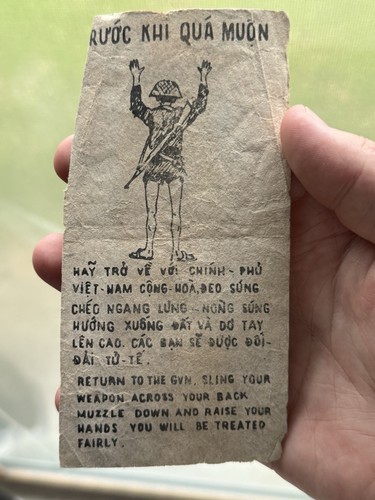 RƯỚC KHI QUÁ MUỘN
HAỸ TRỞ VỀ VỚI CHÍNH-PHỦ
VIỆT-NAM CỘNG-HOÀ, ĐEO SÚNG
CHÉO NGANG LƯNG-NÒNG SÚNG
HƯỚNG XUỐNG ĐẤT VÀ DƠ TAY
LÊN CAO. CÁC BẠN SẼ ĐƯỢC ĐỐI-
ĐẢI TỬ-TẾ.
RETURN TO THE GVN, SLING YOUR
WEAPON ACROSS YOUR BACK
MUZZLE DOWN AND RAISE YOUR
HANDS YOU WILL BE TREATED
FAIRLY.